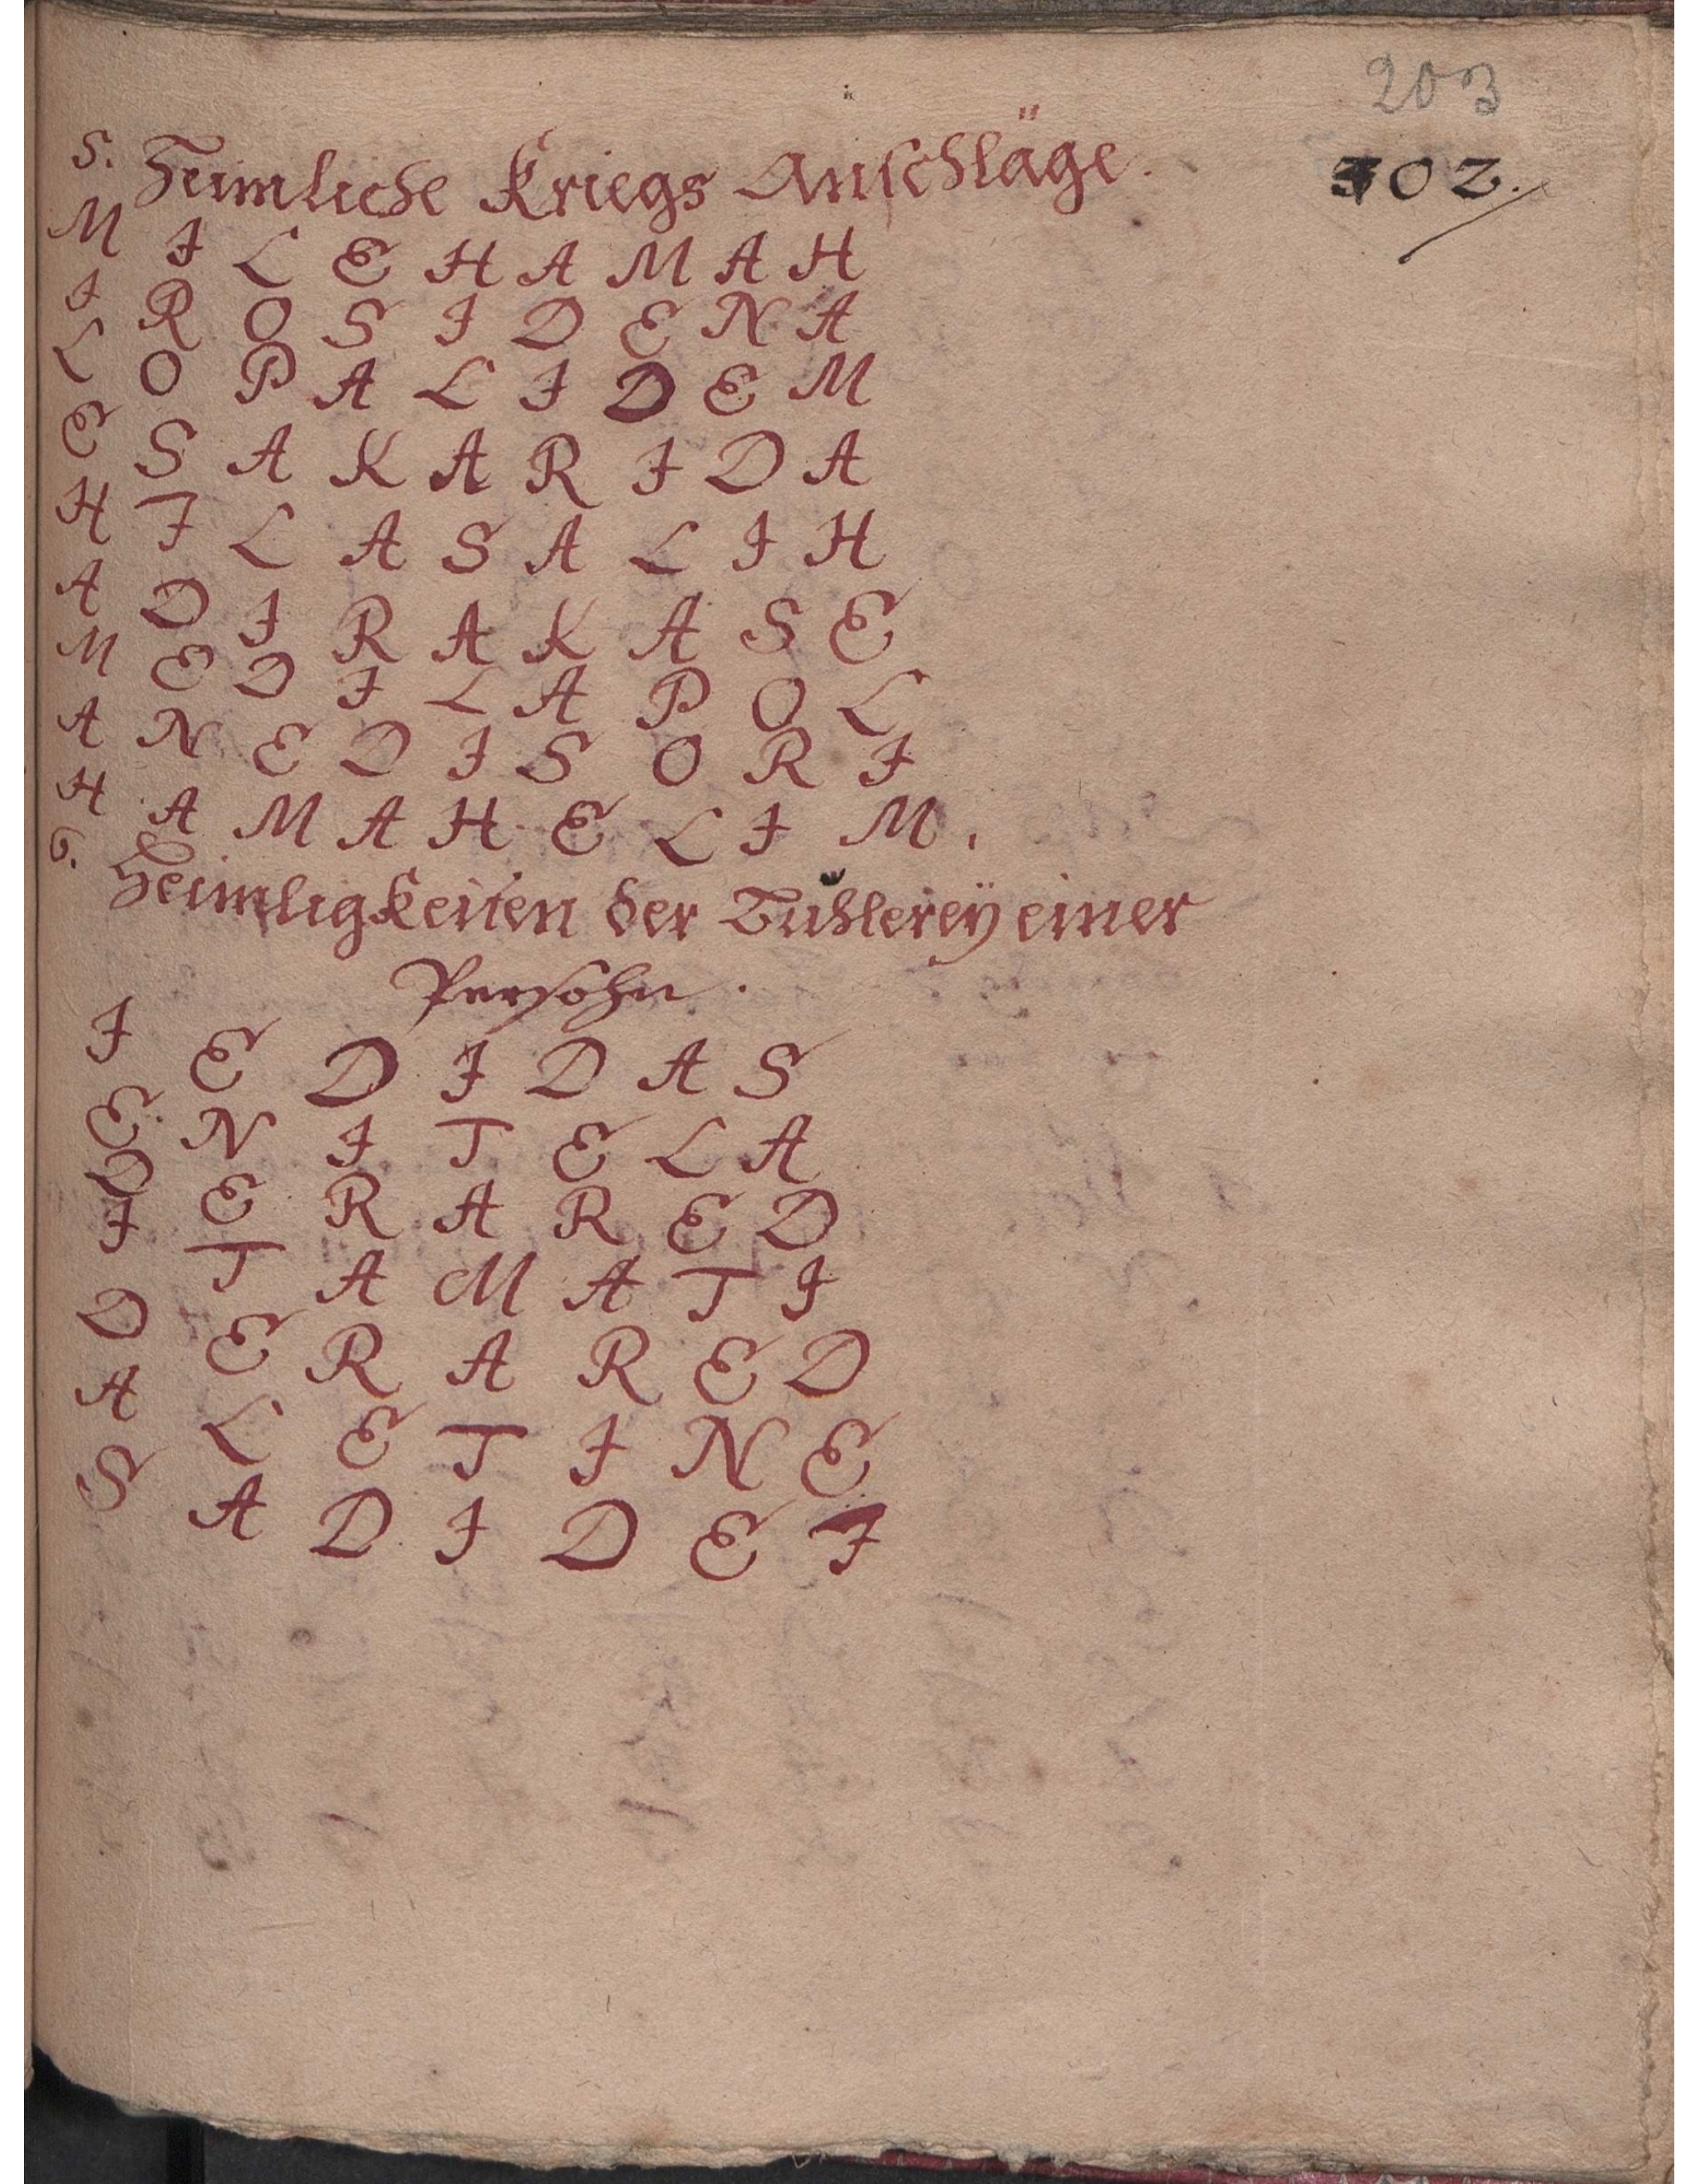 203
5. Heimliche Kriegs Anschläge.
302.
M I L E H A M A H
I R O S I D E N A
L O P A L I D E M
E S A K A R I D A
H I L A S A L I H
A D I R A K A S E
M E D I L A P O L
A N E D I S O R I
H A M A H E L I M.
6. Heimligkeiten der Buhlereÿ einer
Persohn.
I E D I D A S
E N I T E L A
D E R A R E D
I T A M A T I
D E R A R E D
A L E T I N E
S A D I D E I